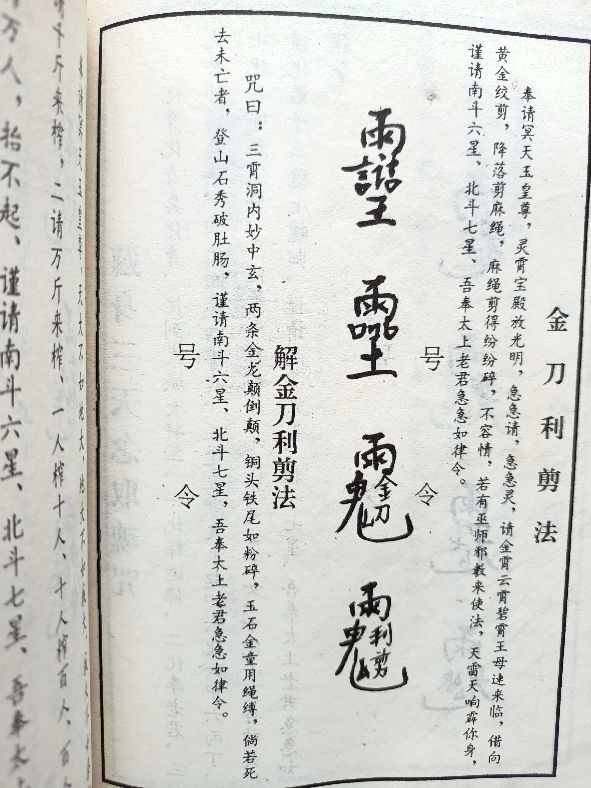 金刀利剪法
奉请冥天玉皇尊，灵霄宝殿放光明，急急请，急急灵，请金霄云霄碧霄王母速来临，借向
黄金绞剪，降落剪麻绳，麻绳剪得纷纷碎，不容情，若有巫师邪教来使法，天雷天响霹你身，
谨请南斗六星、北斗七星、吾奉太上老君急急如律令。
号令
雨鬼金刀
雨鬼利剪
解金刀利剪法
咒曰：三霄洞内妙中玄，两条金龙颠倒颠，铜头铁尾如粉碎，玉石金童用绳缚，倘若死
去未亡者，登山石秀破肚肠，谨请南斗六星、北斗七星，吾奉太上老君急急如律令。
号令
千斤来榨，二请万斤来榨、一人榨十人、十人榨百人、百
万人，抬不起、谨请南斗六星、北斗七星、吾奉太